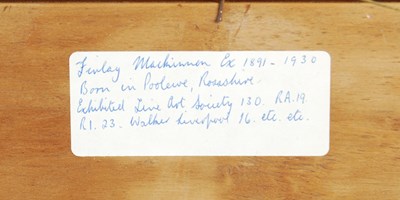 Finlay Mackinnon Ex 1891 - 1930
Born in Poolewe, Rossshire.
Exhibited Fine Art Society 130. RA.19
RI. 23. Walker Liverpool 16. etc. etc.